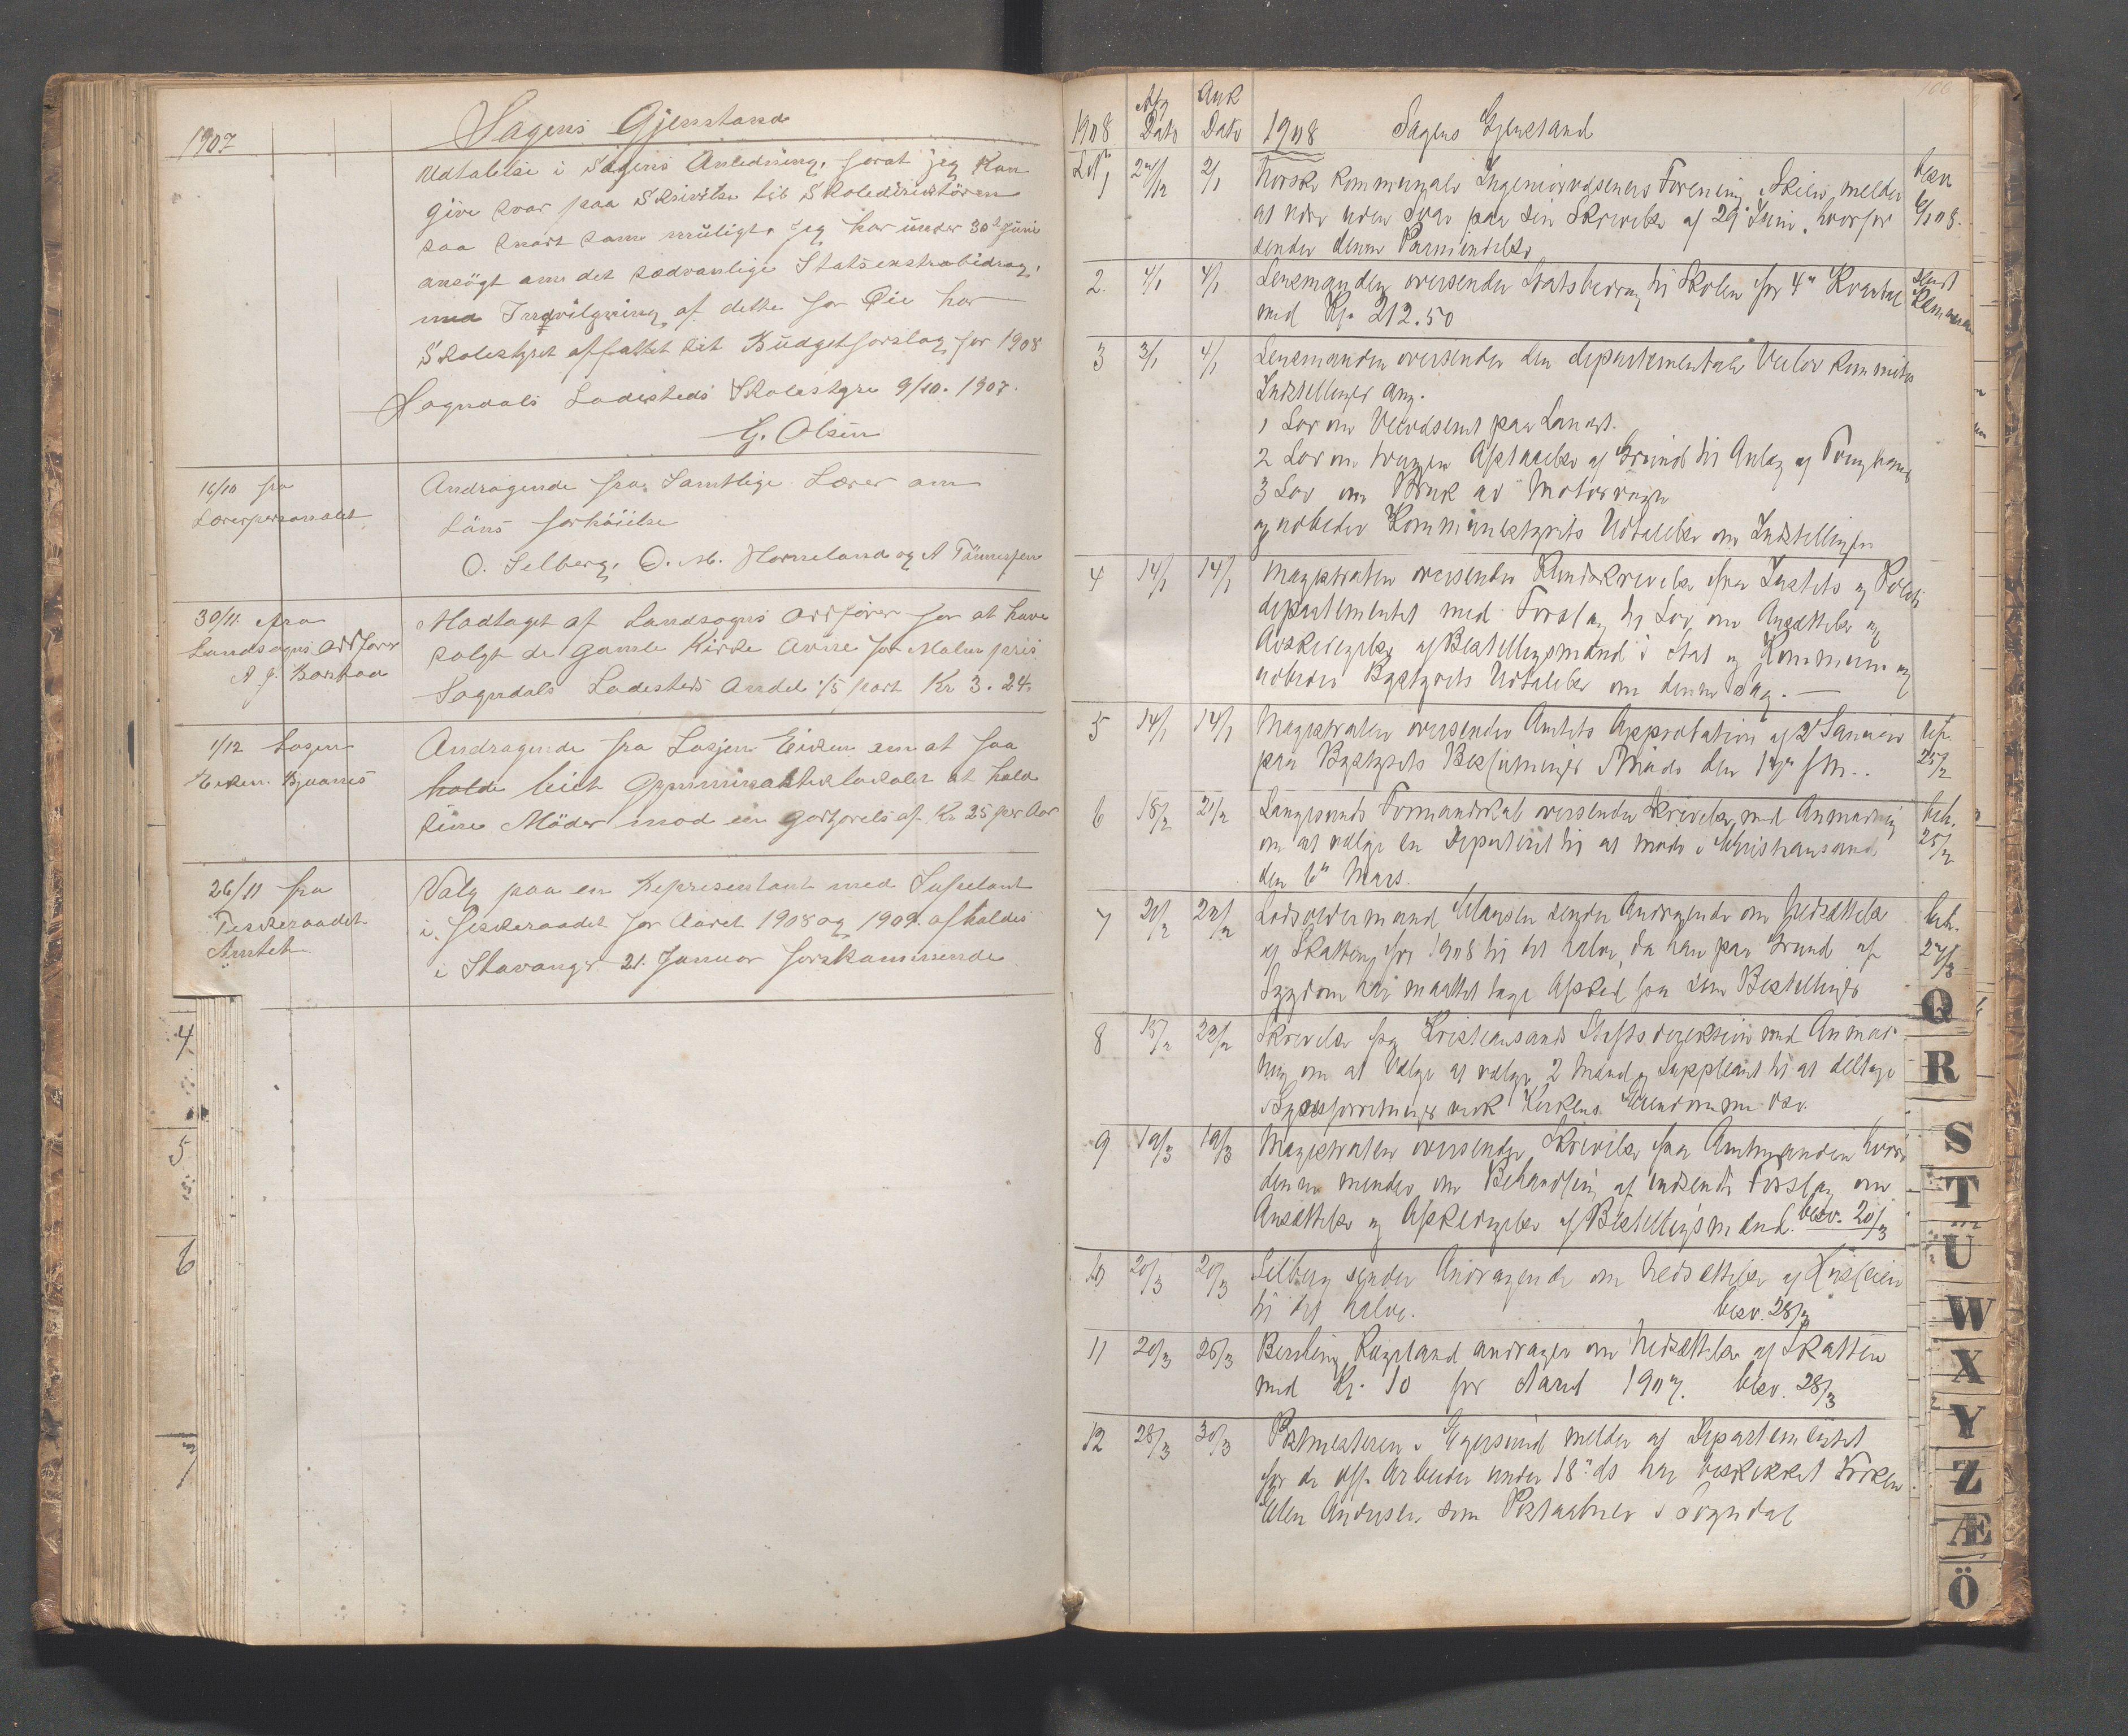 1907
Sagens Gjenstand
Udtalelse i Sagens Anledning, forat jeg kan
give svar paa Skrivelse til Skoledirektören
saa snart som muligt. Jeg har under 30te Juni
ansögt om det sædvanlige Statsekstrabidrag,
med Indvilgning af dette for Öie har
Skolestyret affattet sit Budgetforslag for 1908
Sogndals Ladesteds Skolestyre 9/10. 1907.
G. Olsen
16/10 fra
Lærerpersonalet
Andragende fra Samtlige Lærer om
Löns forhöielse
O. Selberg, O. M. Horneland og A Tönnesen
30/11. fra
Landsogns Ordförer
A. J.
Modtaget af Landsogns Ordförer for at have
solgt de Gamle Kirke Ovne for Kr
Sogndals Ladesteds Andel 1/5 part Kr 3.24.
1/12 Logen
Eiken
Andragende fra Losjen Eiken om at faa
holde leiet Gymnastiklokalet at holde
sine Möder mod en Godtjörelse af Kr 25 per Aar
26/11 fra
Fiskeraadet
Amtet
Valg paa en Representant med Suppelant
i Fiskeraadet for Aaret 1908 og 1909. afholdes
i Stavanger 21. Januar förstkommende
4
5
6
7
1908
Afg
Dato
Ank
Dato
1908
Sagens Gjenstand
LNo
1
27/12
2/1
Norske kommunale Ingeniørvæsens Forening, Skien, melder
at være uden Svar paa sin Skrivelse af 29 Juni, hvorfor
sender denne Paamindelse
besv
6/1 08.
2.
4/1
4/1
Lensmanden oversender Statsbidrag til Skolen for 4de Kvartal
med Kr. 212.50
sendt
Kæmneren
3
3/1
4/1
Lensmanden oversender den departementale Veilov Kommites
Indstillinger ang.
1 Lov om Veivæsenet paa Landet.
2 Lov om tvungen Afstaaelse af Grund til Anlæg af
3 Lov om Bruk av Motorvogne
og udbeder Kommunestyrets Udtalelse om Indstillingen
4
14/1
14/1
Magistraten oversender Rundskrivelse fra Justits og Politi
departementet med Forslag til Lov om Ansættelse og
Avskedigelse af Bestillingsmænd i Stat og Kommune og
udbeder Bystyrets Udtalelse om denne Sag. —
5
14/1
14/1
Magistraten oversender Amtets Approbation af 2 Januar
paa Bystyrets Beslutninger i Møde den 17de f.M..
ref.
25/2
6
18/2
21/2
Langesunds Formandskab oversender Skrivelse med Anmodning
om at vælge en Deputeret til at møde i Kristiansand
den 6te Mars.
beh.
25/2
7
21/2
22/2
Lodsoldermand Clausen sender Andragende om Nedsættelse
af Skatten for 1908 til det halve, da han paa Grund af
Sygdom har maattet tage Afsked fra sine Bestillinger
beh.
27/3
8
15/2
22/2
Skrivelse fra Kristiansands Stiftsdirektion med Anmod-
ning om at Vælge at vælge 2 Mænd og Suppleant til at deltage
i Synsforretninger vedk Kirkens Eiendomme osv.
9
19/3
19/3
Magistraten oversender Skrivelse fra Amtmanden hvori
denne minder om Behandling af indsendt Forslag om
Ansættelse og Afskedigelse af Bestillingsmænd. besv. 20/3
10
20/3
20/3
Selberg sender Andragende om Nedsættelse af Husleien
til det halve.
besv. 28/3
11
20/3
26/3
Berthing Rageland andrager om Nedsættelse af Skatten
med Kr. 10 for Aaret 1907. besv. 28/3
12
28/3
30/3
Postmesteren i Egersund melder at Departementet
for de off. Arbeider under 18de ds har beskikket Frøken
Elen Andersen som Postaabner i Sogndal
Q
R
S
T
U
W
X
Y
Z
Æ
Ö